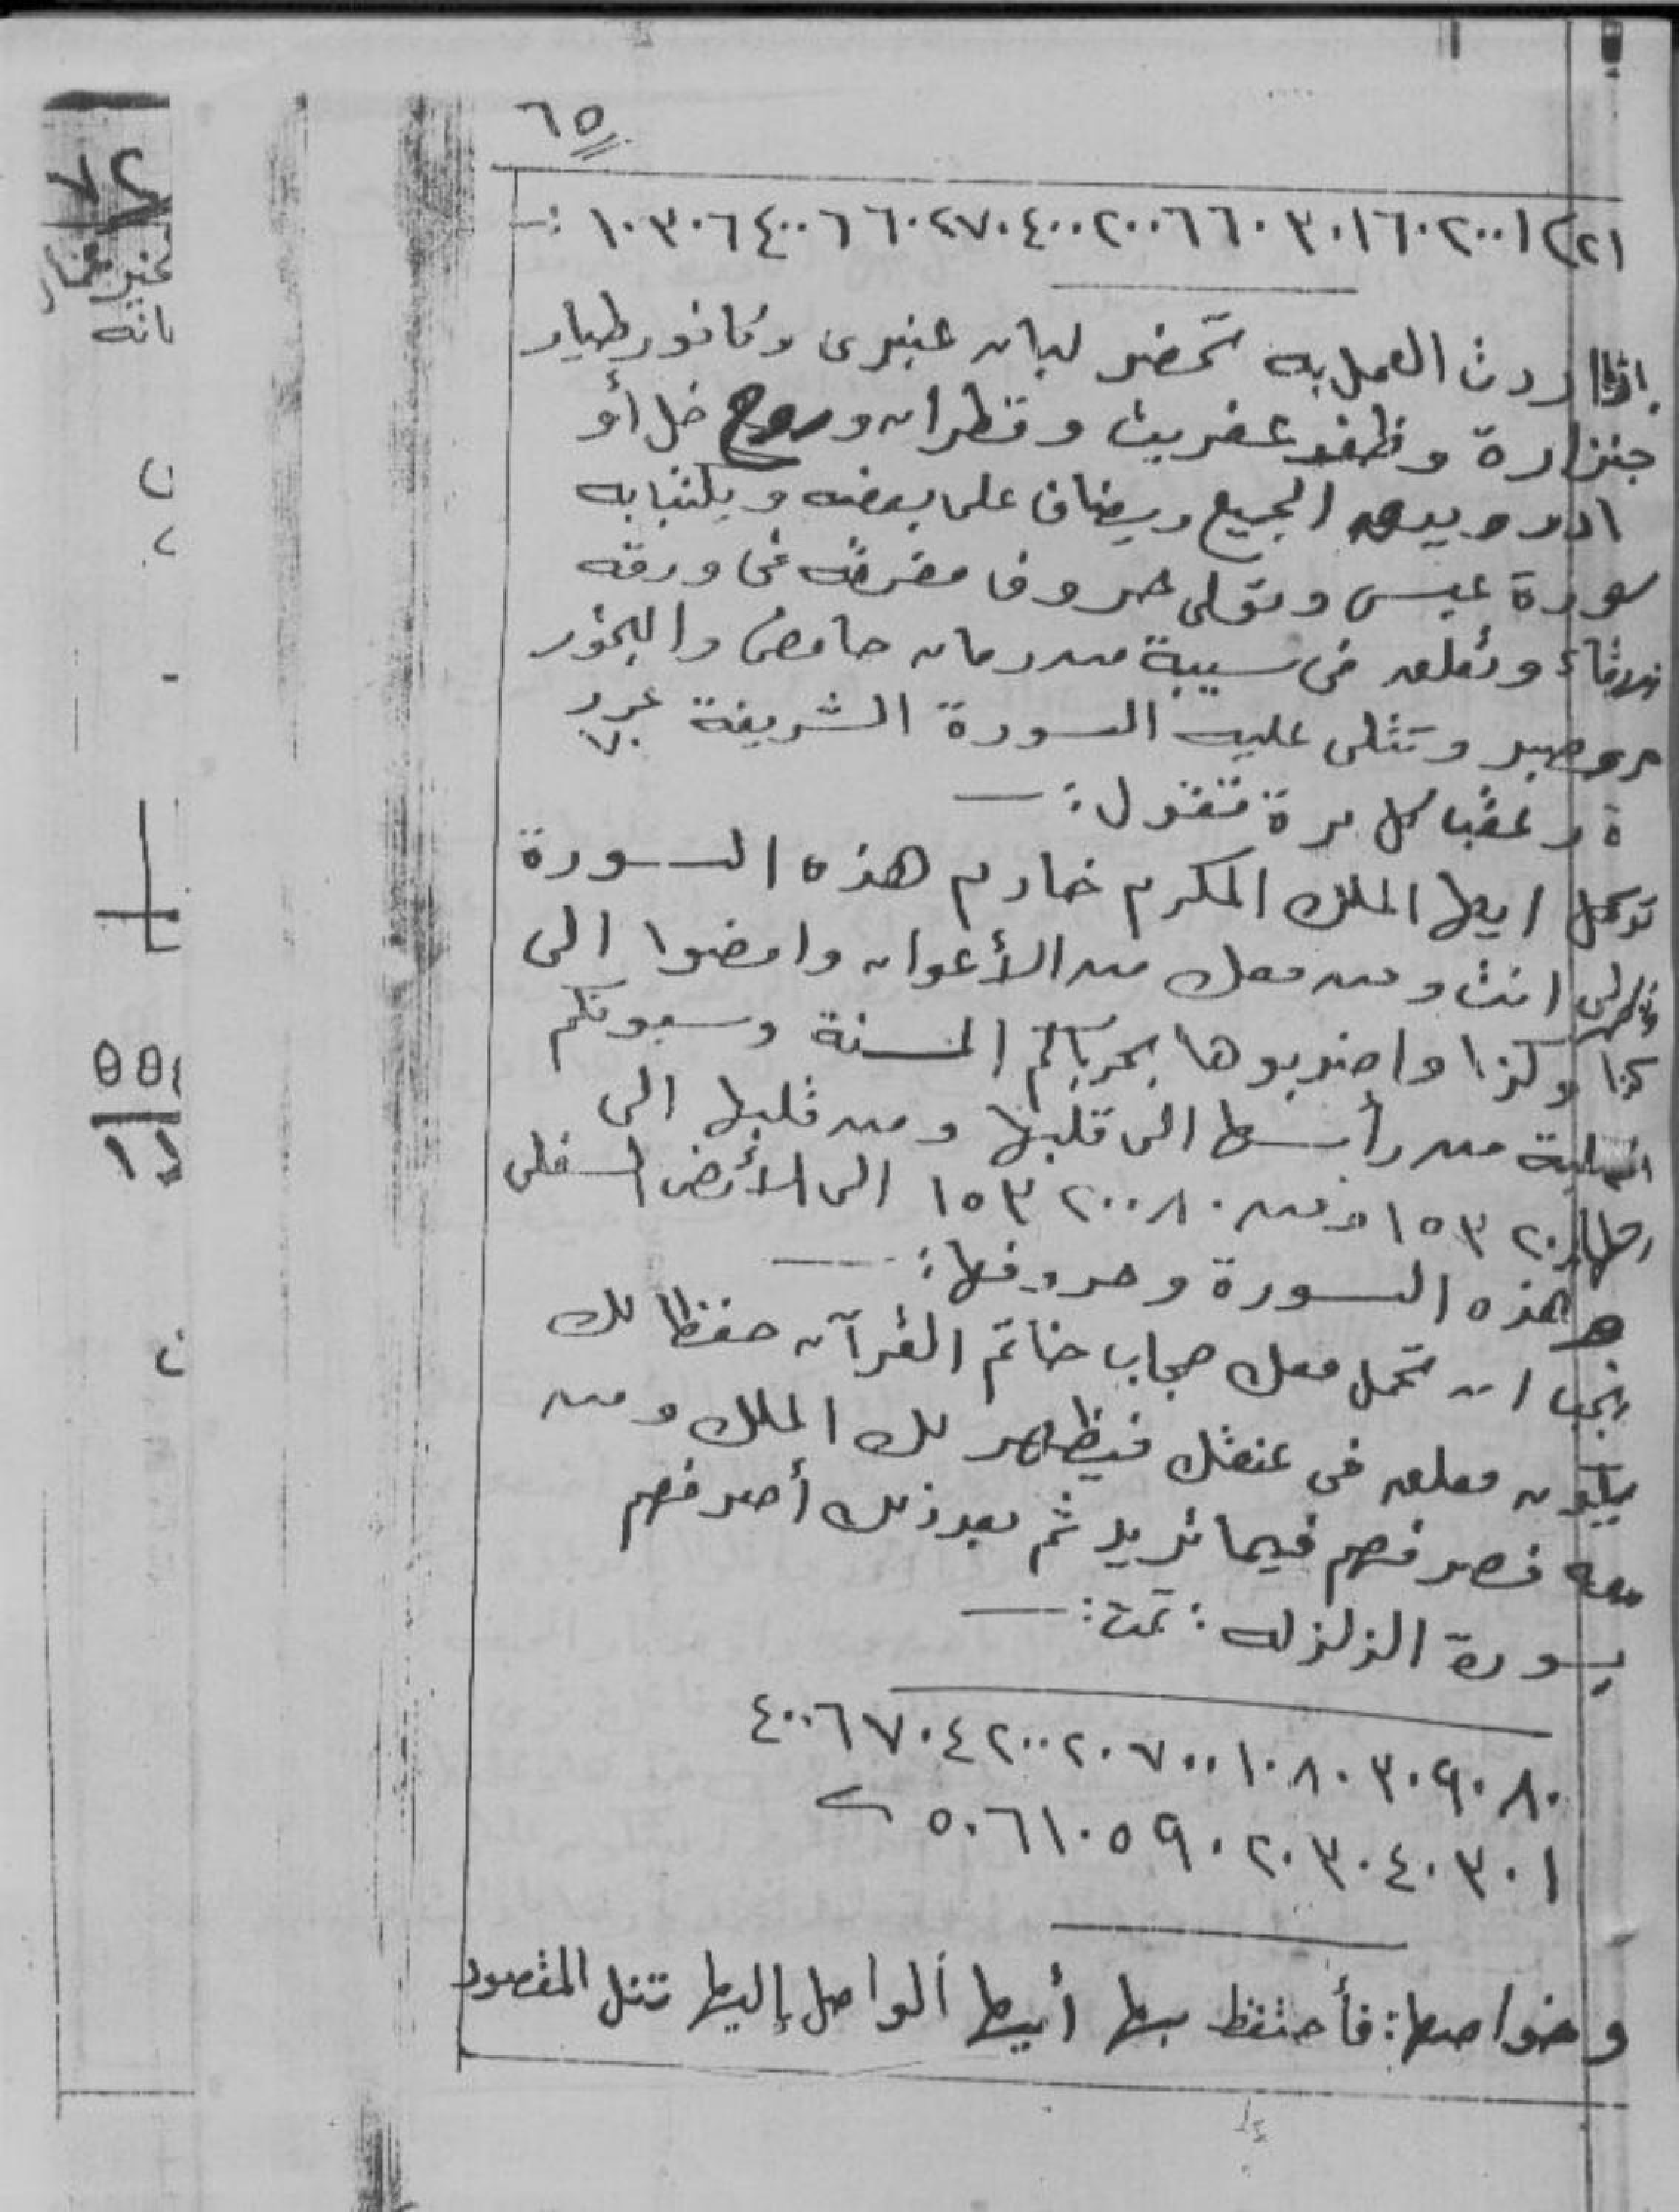 ٦٥
١٠٣٠٦٤٠٠٦٦٠٢٧٠٤٠٠٢٠٠٦٦٠٣٠١٦٠٢٠٠١
اذا اردت العمل به تحضر لبان عنبرى وكافور طيار
جنزارة وظفر عفريت وقطران وروح خل أو
الجميع ويضاف على بعضه ويكتب به
سورة عبس وتولى حروفا مفرقه فى ورقه
زرقاء وتعلق فى سيبة من رمان حامض والبخور
مر وصبر وتتلى عليه السورة الشريفة عدد
٧٠
ة وعقب كل مرة تقول :ـ
توكل ايها الملك المكرم خادم هذه السورة
انت ومن معك من الأعوان وامضوا الى
كذا وكذا واضربوها بحرباكم المسنة وسيوفكم
من رأسها الى قلبها ومن قلبها الى
١٥٣٢٠٠ ومن ١٥٣٢٠٠٨٠ الى الأرض السفلى
هذه السورة وحروفها :ـ
يجب ان تحمل معك حجاب خاتم القرآن حفظا لك
يكون معلق فى عنقك فيظهر لك الملك ومن
معه فصرفهم فيما تريد ثم بعد ذلك أصرفهم
بسورة الزلزله : تمت :ـ
٤٠٠٦٧٠٤٢٠٠٢٠٧٠٠١٠٨٠٣٠٩٠٨٠
٥٠٦١٠٥٩٠٢٠٣٠٤٠٣٠١
وخواصها : فأحتفظ بها أيها الواصل إليها تنل المقصود
٧٢